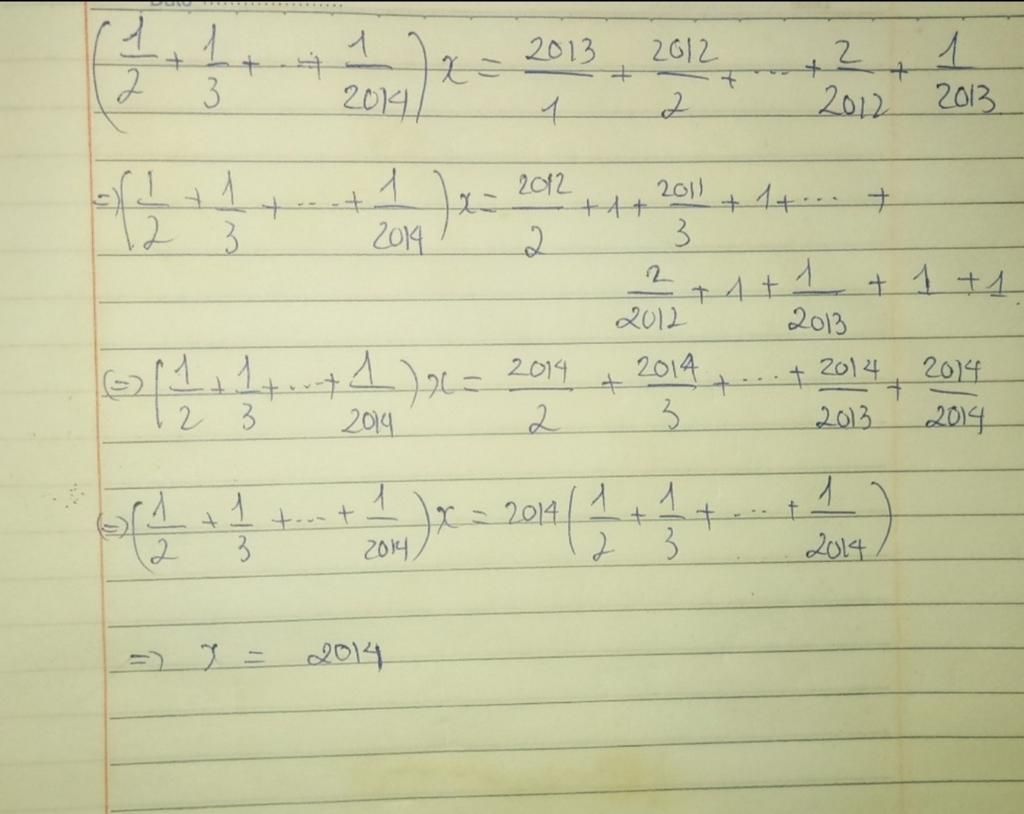 Date
(1/2 + 1/3 + ... + 1/2014) x = 2013/1 + 2012/2 + ... + 2/2012 + 1/2013
=> (1/2 + 1/3 + ... + 1/2014) x = 2012/2 + 1 + 2011/3 + 1 + ... +
2/2012 + 1 + 1/2013 + 1 + 1
(=> (1/2 + 1/3 + ... + 1/2014) x = 2014/2 + 2014/3 + ... + 2014/2013 + 2014/2014
(=> (1/2 + 1/3 + ... + 1/2014) x = 2014 (1/2 + 1/3 + ... + 1/2014)
=> x = 2014